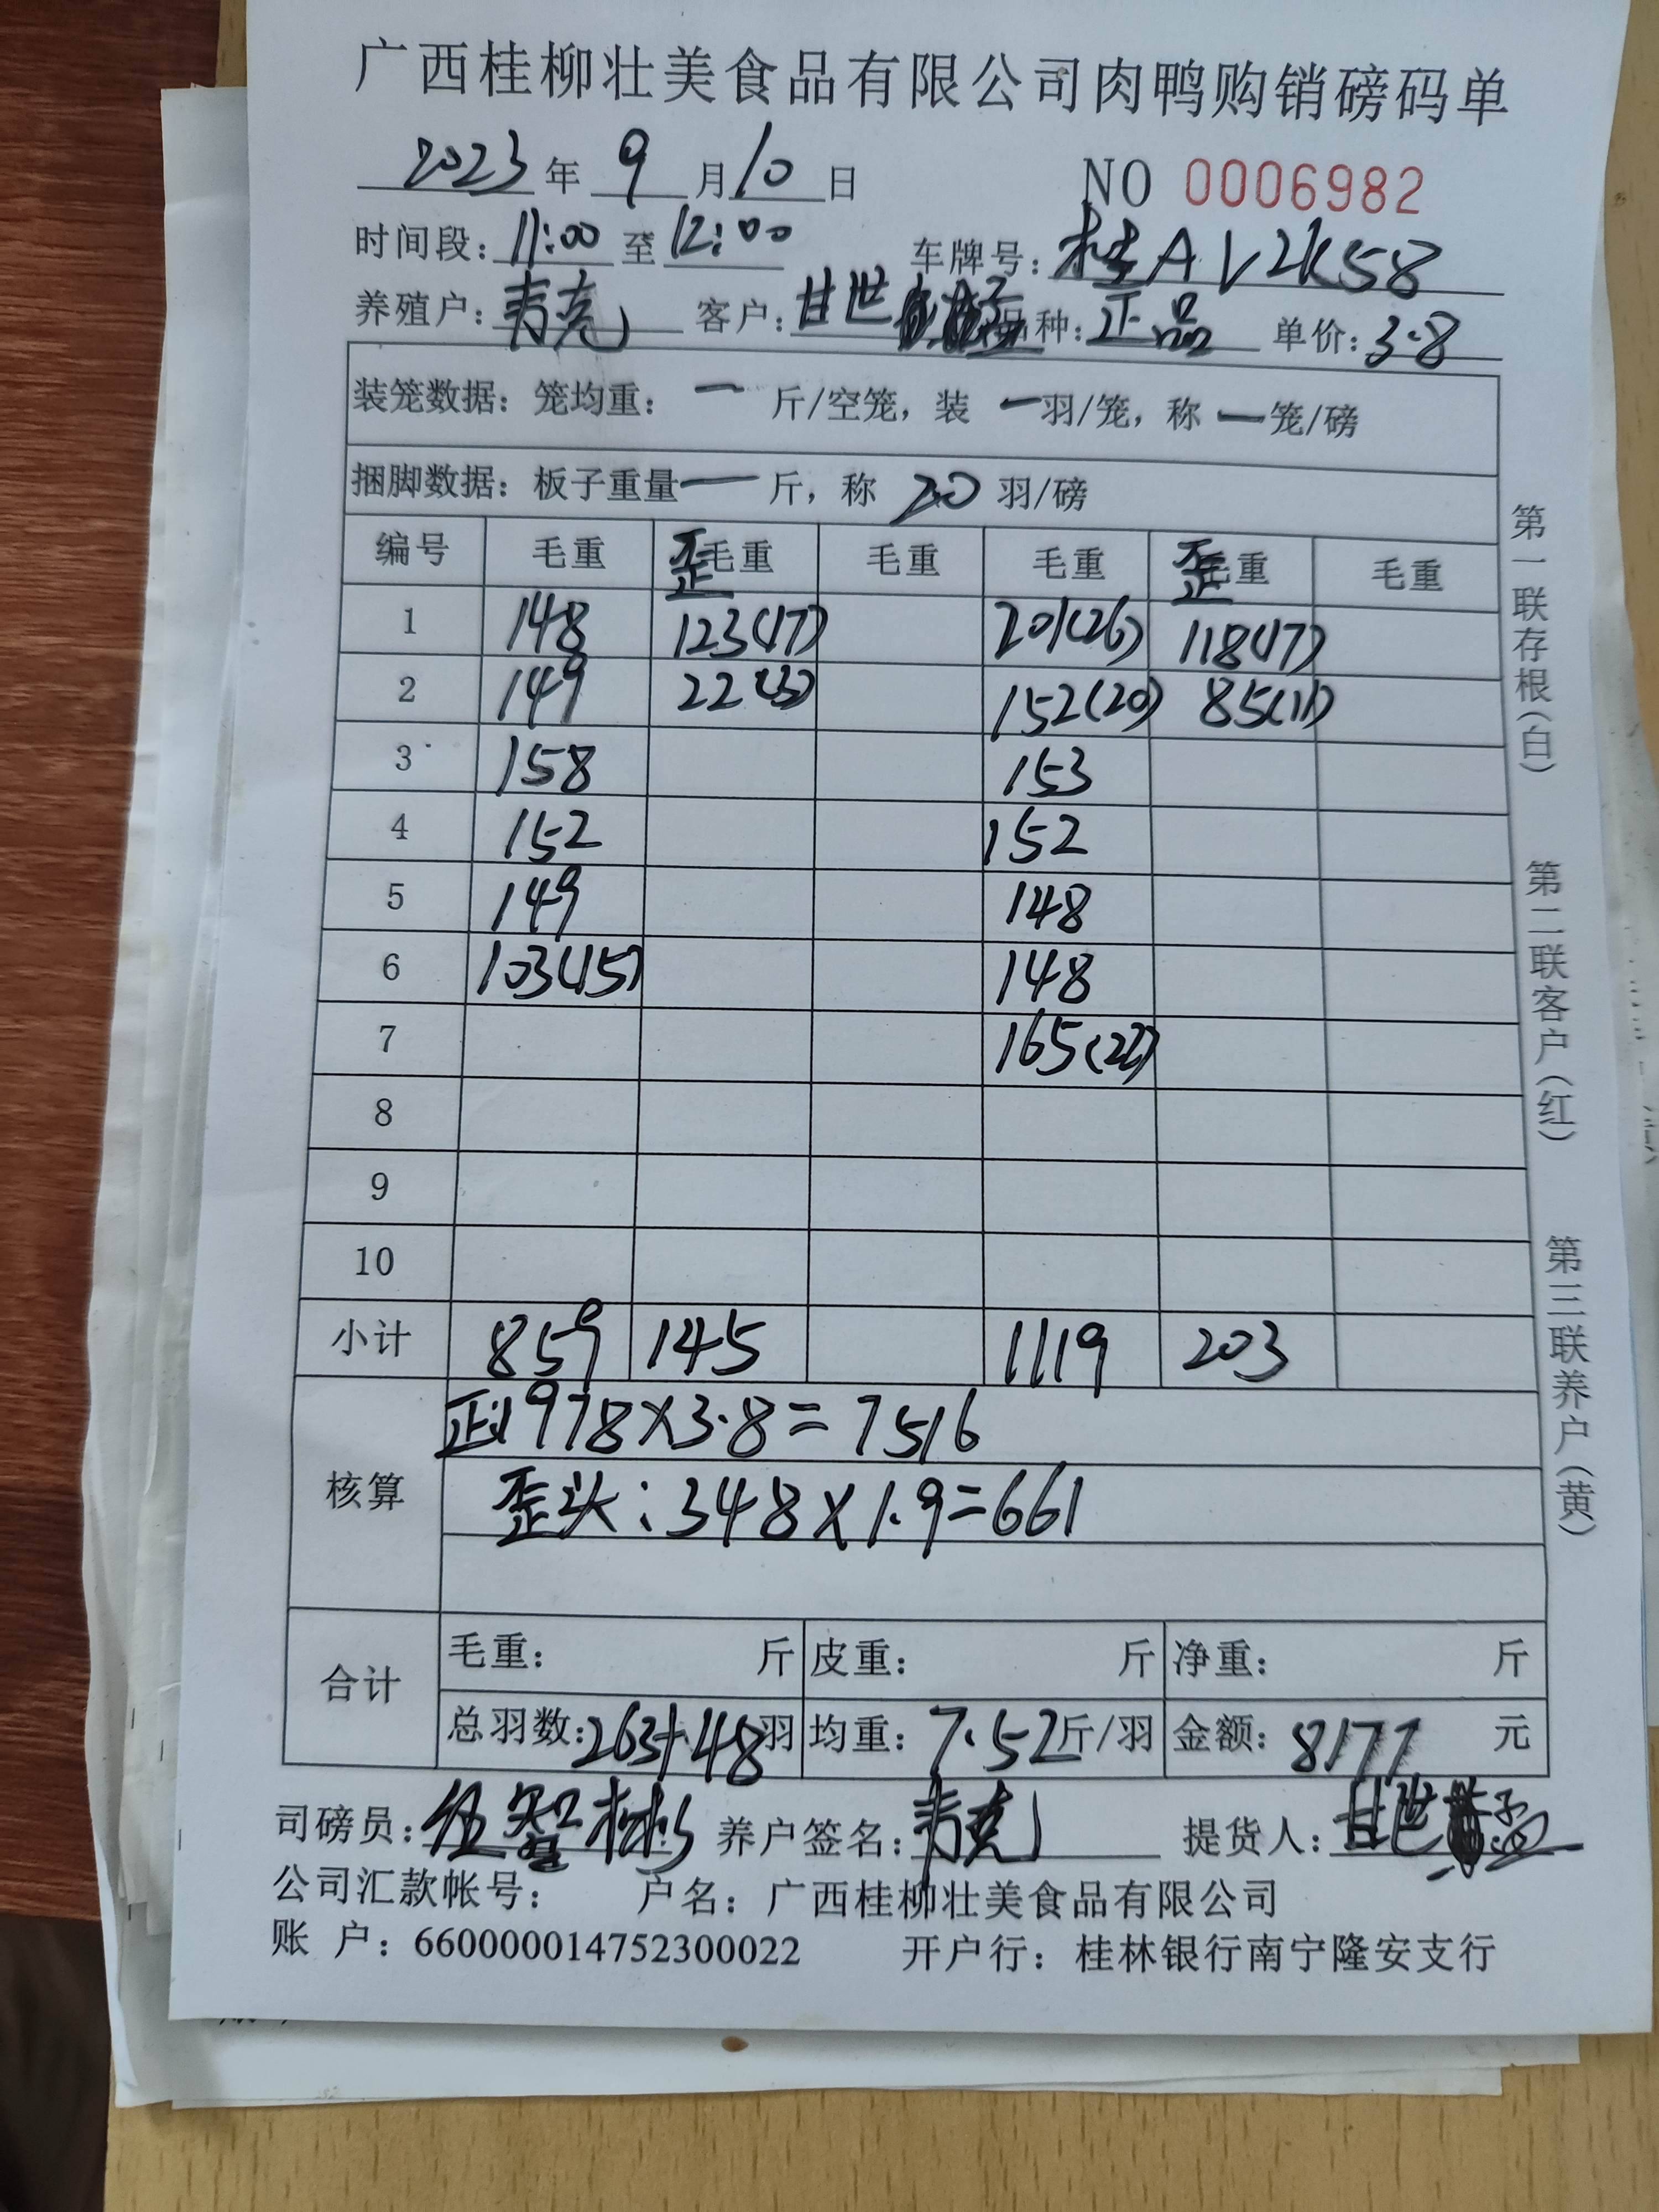 广西桂柳壮美食品有限公司肉鸭购销磅码单
2023年 9月10日 NO 0006982
时间段：11:00至12:00 车牌号：桂AV2K58
养殖户：韦克 客户：甘世 品种：正品 单价：3.8
装笼数据：笼均重：一斤/空笼，装一羽/笼，称一笼/磅
捆脚数据：板子重量一斤，称20羽/磅
编号 毛重 歪毛重 毛重 毛重 歪毛重 毛重
1 148 123(17) 201(26) 118(17)
2 149 22(3) 152(20) 85(11)
3 158 153
4 152 152
5 149 148
6 103(15) 148
7 165(22)
8
9
10
小计 859 145 1119 203
核算 正:1978×3.8=7516
歪头:348×1.9=661
合计 毛重： 斤 皮重： 斤 净重： 斤
总羽数：263+48羽 均重：7.52斤/羽 金额：8177元
司磅员：伍智彬 养户签名：韦克 提货人：甘世
公司汇款帐号： 户名：广西桂柳壮美食品有限公司
账 户：660000014752300022 开户行：桂林银行南宁隆安支行
第一联存根(白) 第二联客户(红) 第三联养户(黄)